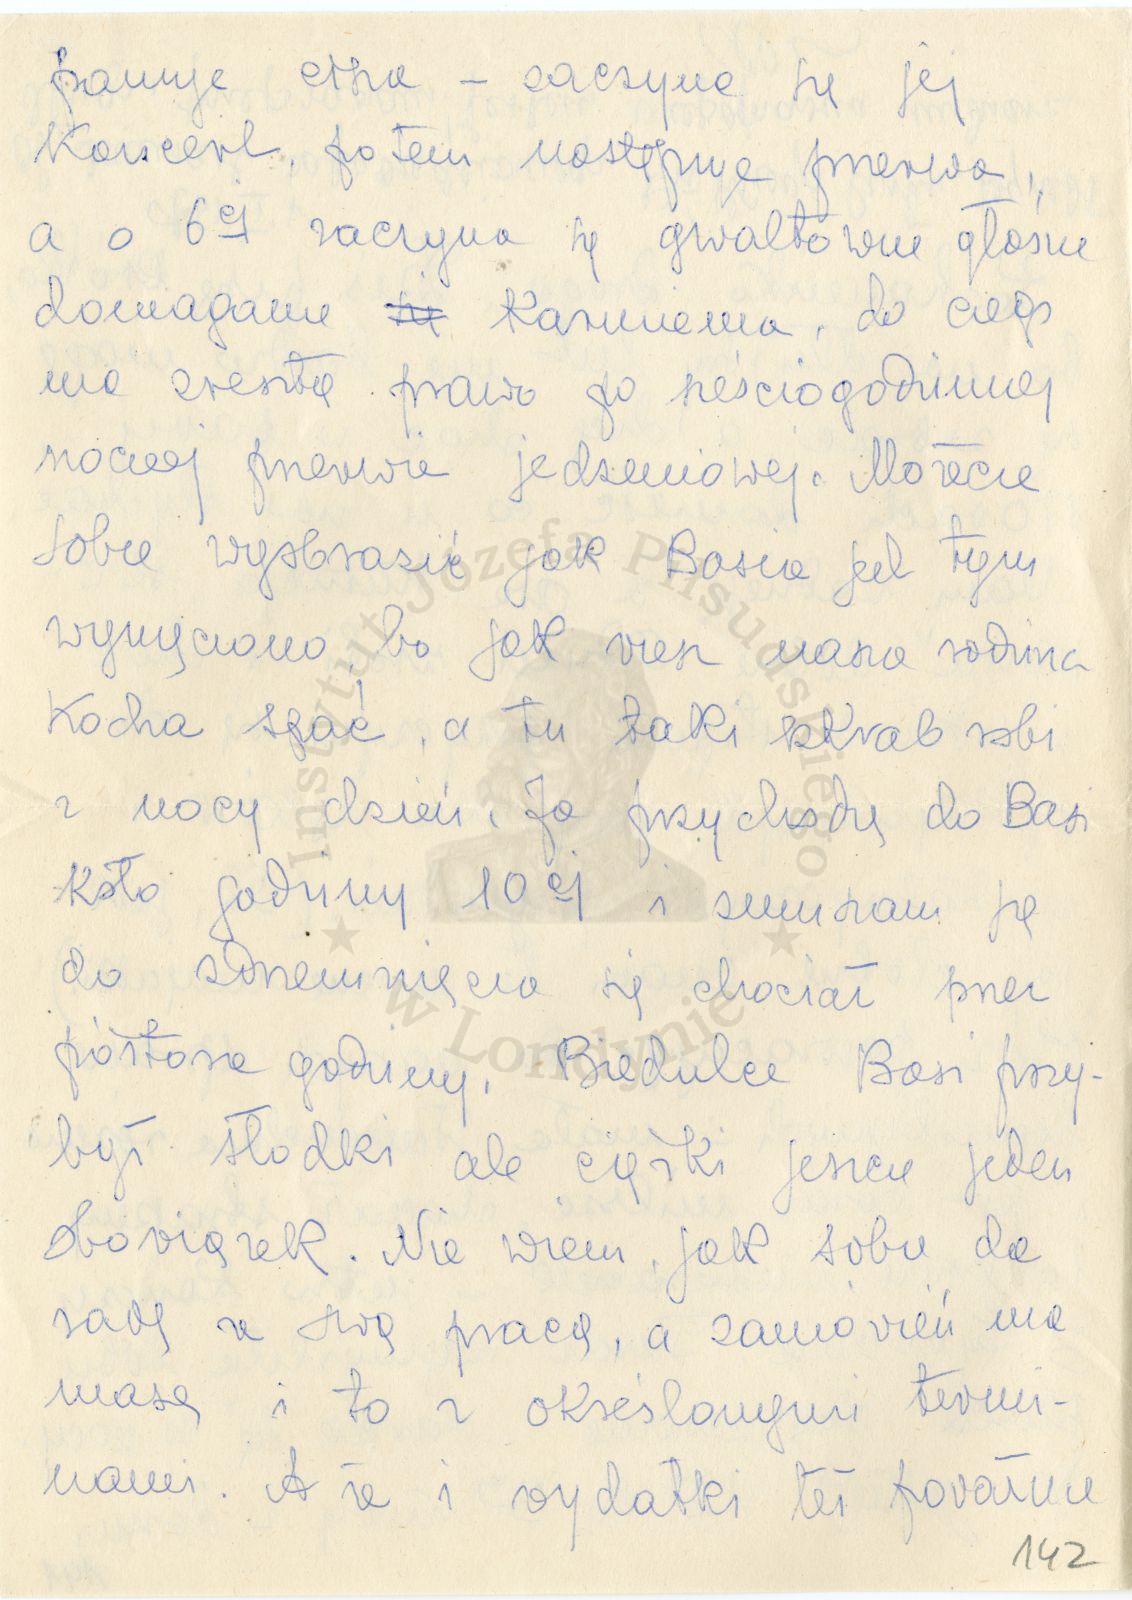 panuje cisza – zaczyna się jej
koncert, potem następuje przerwa,
a o 6ej zaczyna się gwałtowne głośne
domaganie się karmienia, do czego
ma zresztą prawo po sześciogodzinnej
nocnej przerwie jedzeniowej. Możecie
sobie wyobrazić jak Basia jest tym
wymęczona, bo jak wiesz nasza rodzina
kocha spać, a tu taki skrab robi
z nocy dzień. Ja przychodzę do Basi
koło godziny 10ej i zmuszam ją
do zdrzemnięcia się chociaż przez
półtora godziny. Biedulce Basi przy-
był słodki ale ciężki jeszcze jeden
obowiązek. Nie wiem, jak sobie da
radę ze swą pracą, a zamówień ma
masę i to z określonymi termi-
nami. A że i wydatki też poważne
142
Instytut Józefa Piłsudskiego
w Londynie